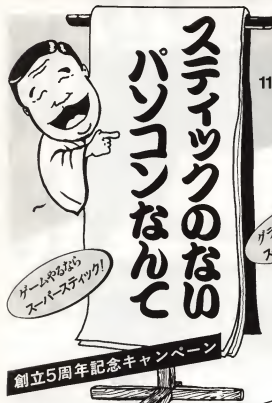 スティックのない
パソコンなんて
11
ゲームやるなら
スーパースティック!
創立5周年記念キャンペーン